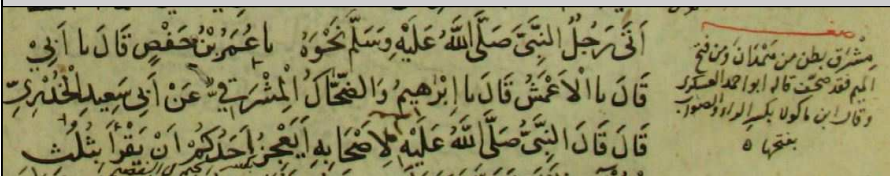 أَتَى رَجُلٌ النَّبِيَّ صَلَّى اللَّهُ عَلَيْهِ وَسَلَّمَ نَحْوَهُ نا عُمَرُ بْنُ حَفْصٍ قَالَ نا أَبِي
قَالَ نا الْأَعْمَشُ قَالَ نا إِبْرَاهِيمُ وَالضَّحَّاكُ الْمِشْرَقِيُّ عَنْ أَبِي سَعِيدٍ الْخُدْرِيِّ
قَالَ قَالَ النَّبِيُّ صَلَّى اللَّهُ عَلَيْهِ لِأَصْحَابِهِ أَيَعْجِزُ أَحَدُكُمْ أَنْ يَقْرَأَ بِثُلُثِ
مشرق بطن من همدان ومن فتح
الميم فقد صحف قاله ابو احمد العسكري
وقال ابن ماكولا بكسر الراء والصواب
بفتحها ه